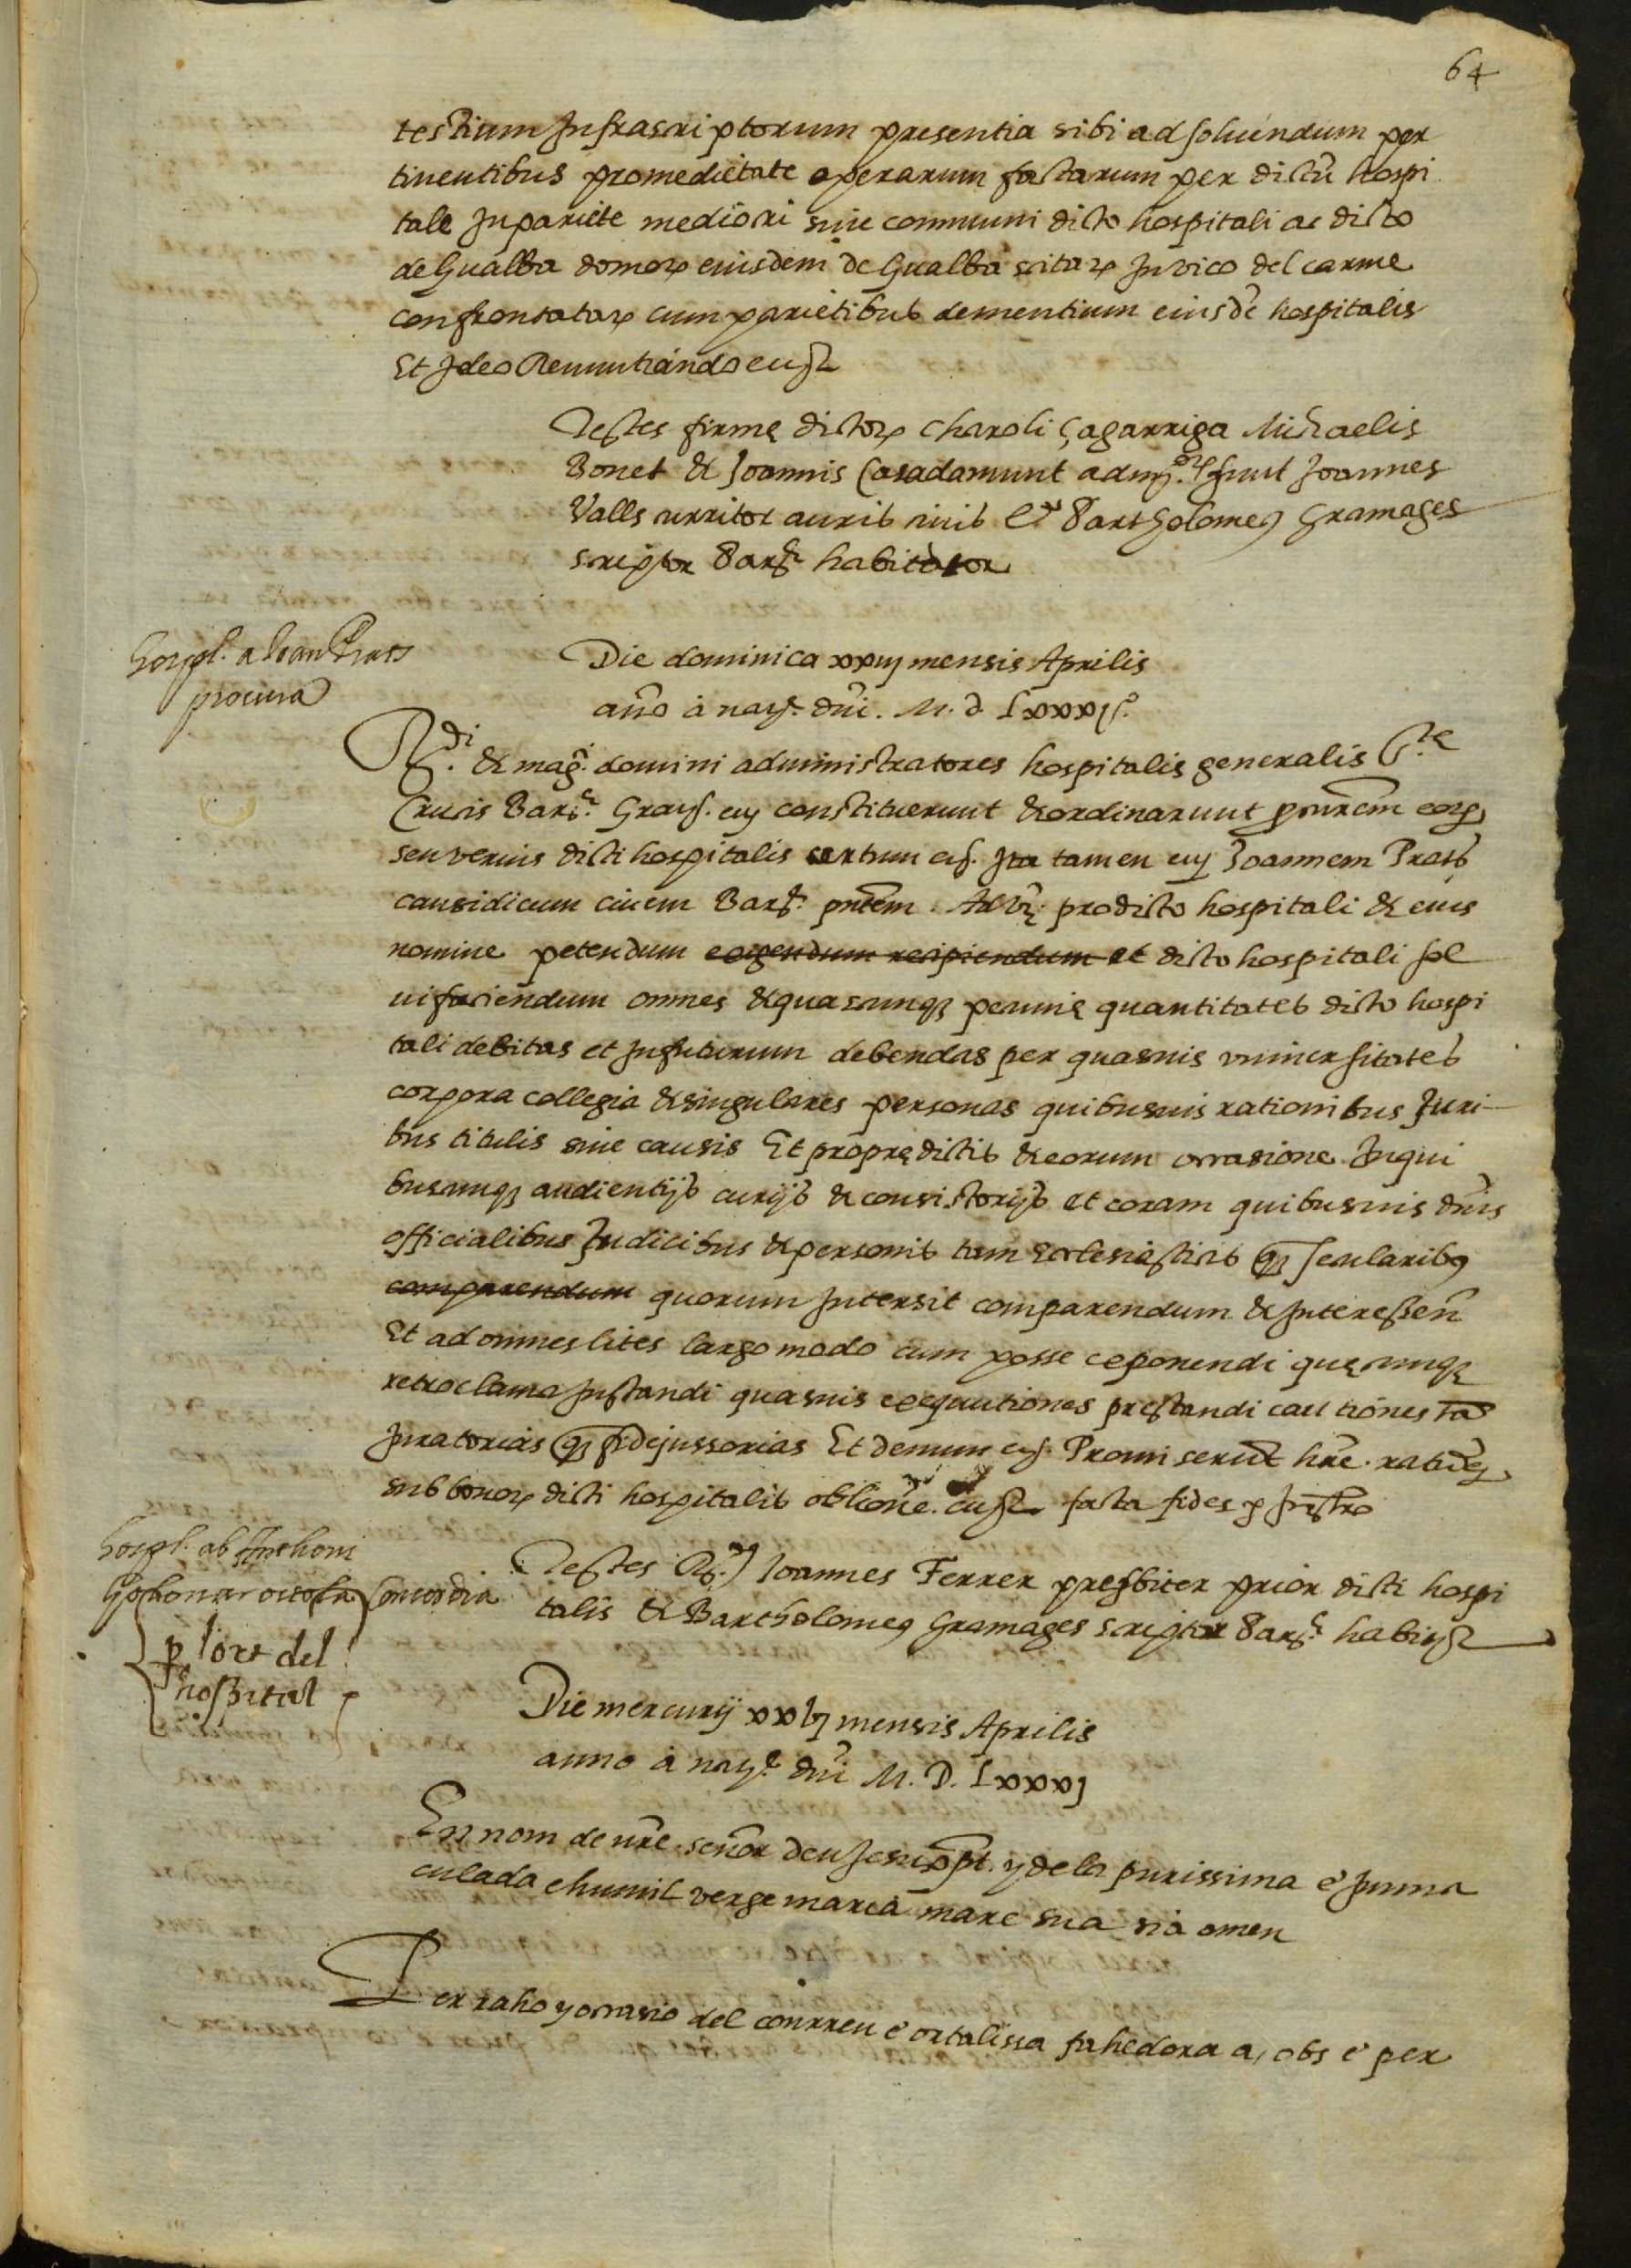 64
testium Infrascriptorum presentia sibi ad soluendum per
tinentibus pro medietate operarum factarum per dictũ hospi
tale In pariete mediocri siue communi dicto hospitali ac dicto
de Gualba domoꝝ eiusdem de Gualba sitaꝝ In vico del carme
confrontataꝝ cum parietibus dementium eiusdẽ hospitalis
Et Ideo Renuntiando
Testes firmę dictoꝝ Charoli Çagarriga Michaelis
Bonet & Joannis Casadamunt sunt Joannes
Valls scriptor auris ciuis Et Bartholomeꝰ Gramages
scriptor Barꝭ habitator
hospl. a Joan Prats
procura
Die dominica xxiij mensis Aprilis
año à natꝭ. dñi. M. D. Lxxxj.º
R.di & mag.ci domini administratores hospitalis generalis S.te
Crucis Barꝭ. Gratꝭ. constituerunt & ordinarunt eoꝝ
seu verius dicti hospitalis certum Ita tamen Joannem Prats
causidicum ciuem Barꝭ. pñtem. pro dicto hospitali & eius
nomine petendum exigendum recipiendum et dicto hospitali sol
ui faciendum omnes & quascunqꝫ pecunię quantitates dicto hospi
tali debitas et In futurum debendas per quasuis vniuersitates
corpora collegia & singulares personas quibusuis rationibus Juri
bus titulis siue causis Et pro prędictis & eorum occasione In qui
buscunqꝫ audientijs curijs & consistorijs et coram quibusuis dñis
officialibus Judicibus & personis tam Ecclesiasticis qꝫ secularibꝰ
comparendum quorum Intersit comparendum & Interessen̄
Et ad omnes lites largo modo cum posse exponendi quęcunqꝫ
retroclama Instandi quasuis exequutiones prestandi cautiones tā
Juratorias qꝫ fidejussorias Et demum Promiserũt hr̃e. ratũ
sub bonoꝝ dicti hospitalis oblione. facta fides ꝑ
hospl. ab Anthoni
concordia
ꝑ lort del
hospital
Testes R.dus Joannes Ferrer presbiter prior dicti hospi
talis & Bartholomeꝰ Gramages scriptor Barꝭ habitꝭ
Die mercurij xxvj mensis Aprilis
anno à natꝭ dñi M. D. Lxxxj
En nom de nr̃e. señor deu Jesuxp̃t. y de la purissima e Inma
culada e humil verge maria mare sua sia amen
Per raho y occasio del conrreu e ortalissa fahedora a, obs e per